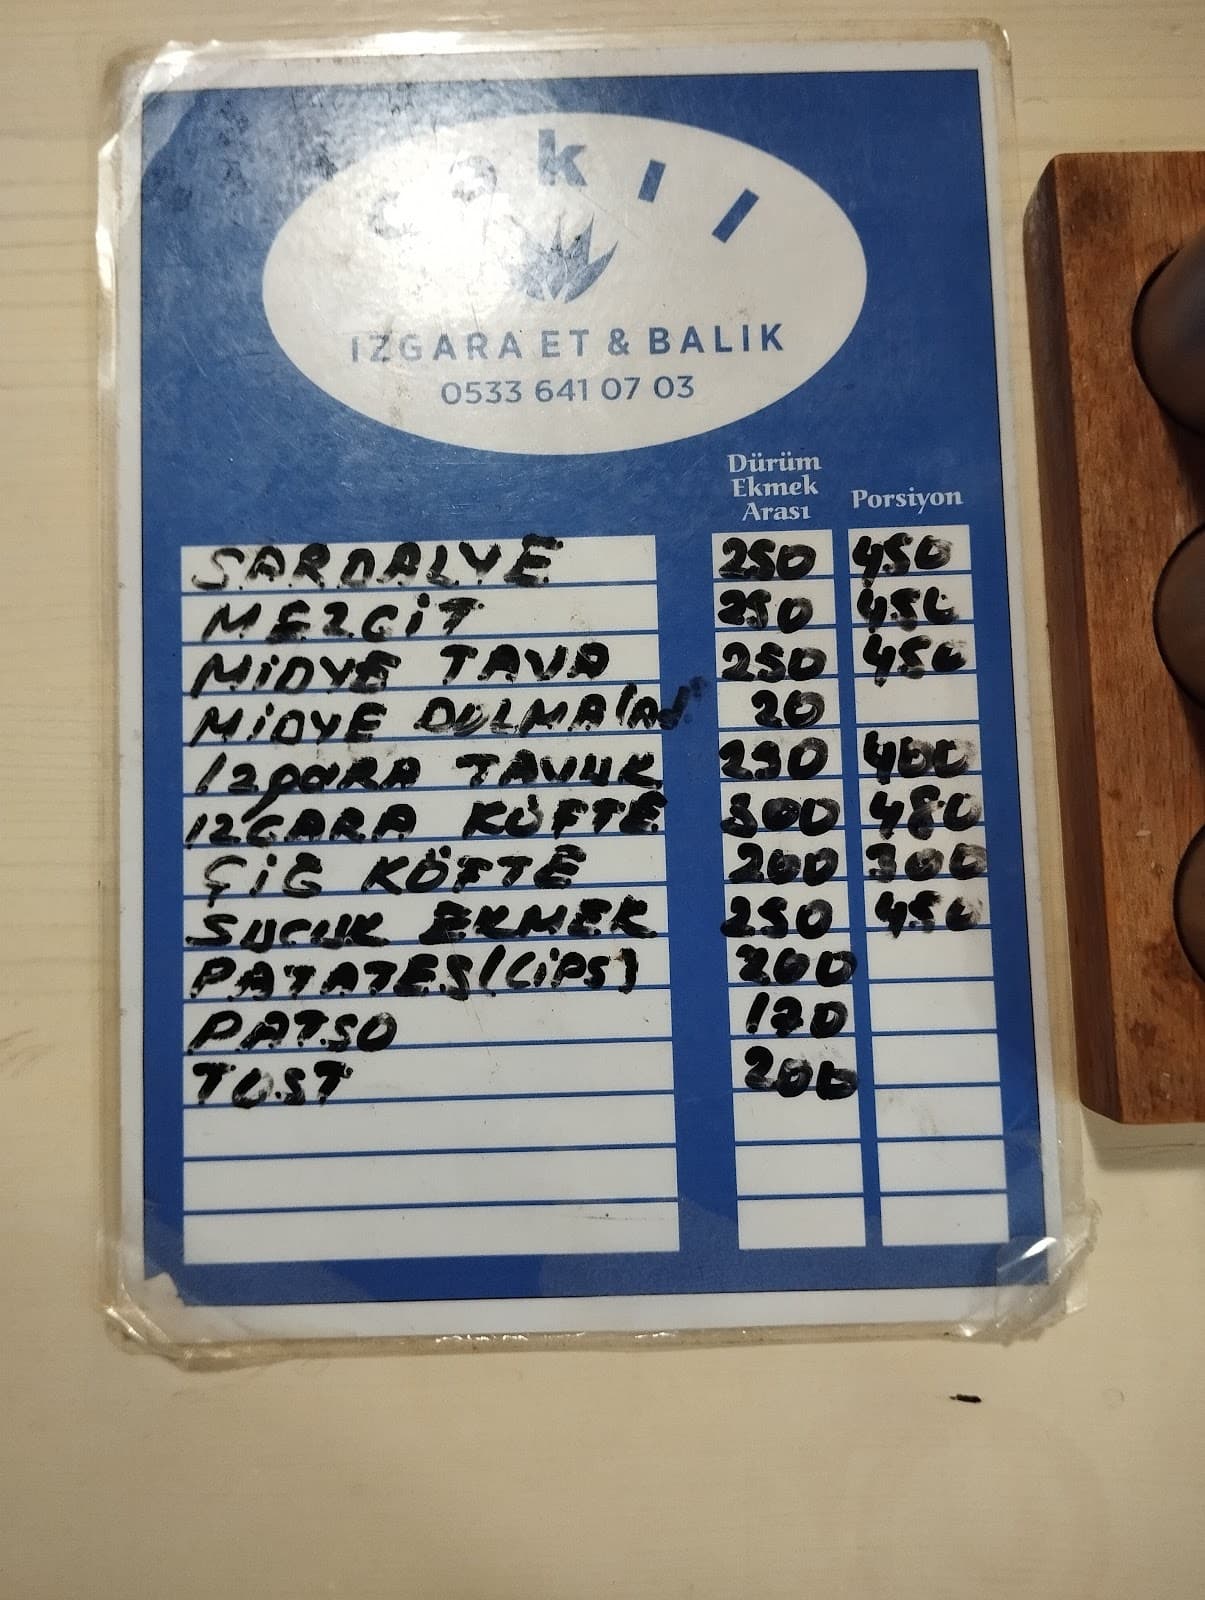 çakıl
IZGARA ET & BALIK
0533 641 07 03
Dürüm
Ekmek
Arası
Porsiyon
SARDALYE 250 450
MEZGİT 250 450
MİDYE TAVA 250 450
MİDYE DOLMA 20
IZgARA TAVUK 250 400
IZGARA KÖFTE 300 480
ÇİĞ KÖFTE 200 300
SUCUK EKMEK 250 450
PATATES(CİPS) 200
PATSO 170
TOST 200